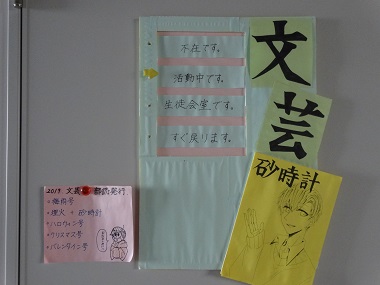 不在です。
活動中です。
生徒会室です。
すぐ戻ります。
文芸
砂時計
2019 文芸部 部誌発行
埋火 + 砂時計
ハロウィン号
クリスマス号
バレンタイン号